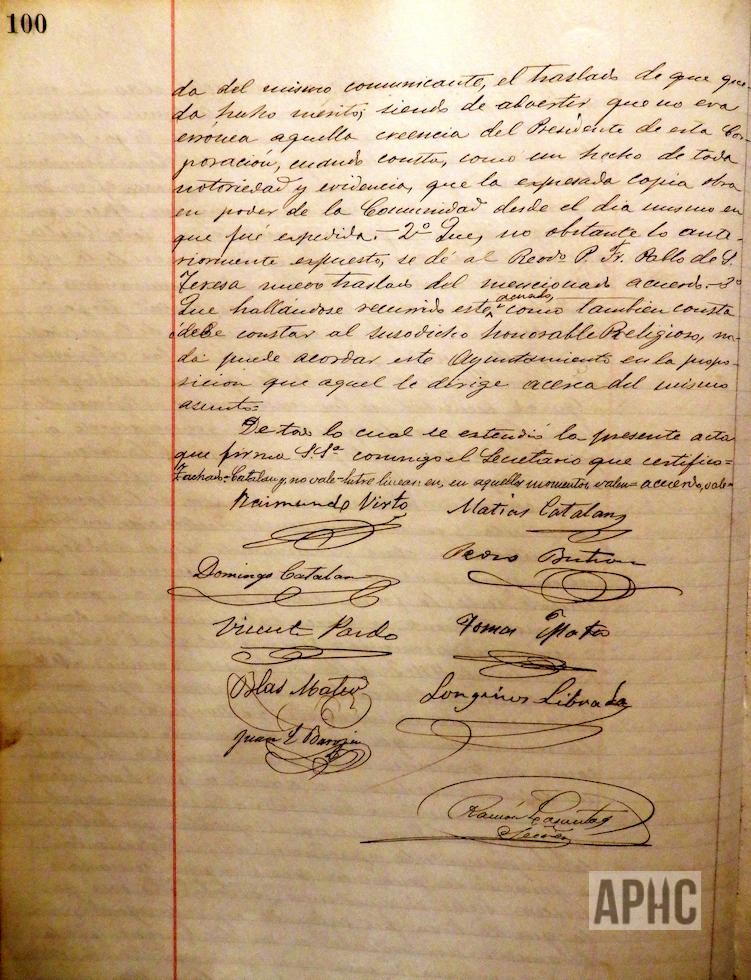 100
da del mismo comunicante, el traslado de que que-
da hecho mérito; siendo de advertir que no era
errónea aquella creencia del Presidente de esta Cor-
poración, cuando consta, como un hecho de toda
notoriedad y evidencia, que la expresada copia obra
en poder de la Comunidad desde el dia mismo en
que fué expedida.- 2º Que, no obstante lo ante-
riormente expuesto, se dé al Revdo P. Fr. Pablo de S.
Teresa nuevo traslado del mencionado acuerdo.- 3º
Que hallándose recurrido este acuerdo, como tambien consta
ó debe constar al susodicho honorable Religioso, na-
da puede acordar este Ayuntamiento en la propo-
sicion que aquel le dirige acerca del mismo
asunto=
De todo lo cual se estendió la presente acta
que firma S.Sª conmigo el Secretario que certifico=
Tachado=Catalan y, no vale=Entre lineas: en, en aquellos momentos, valen= acuerdo, vale=
Raimundo Virto
Matias Catalan
Pedro Butron
Domingo Catalan
Vicente Pardo
Tomas
Blas Mateo
Longinos Librada
Juan
Ramón
Srio
APHC